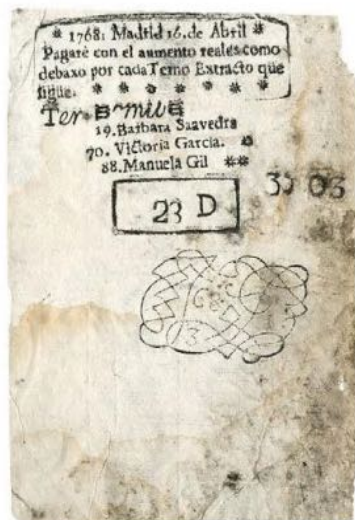 * 1768. Madrid 16. de Abril *
Pagarè con el aumento reales como
debaxo por cada Terno Extracto que
sigue. * * * * * * *
Ter. mil
19. Barbara Saavedra
70. Victoria Garcia. *
88. Manuela Gil **
23 D